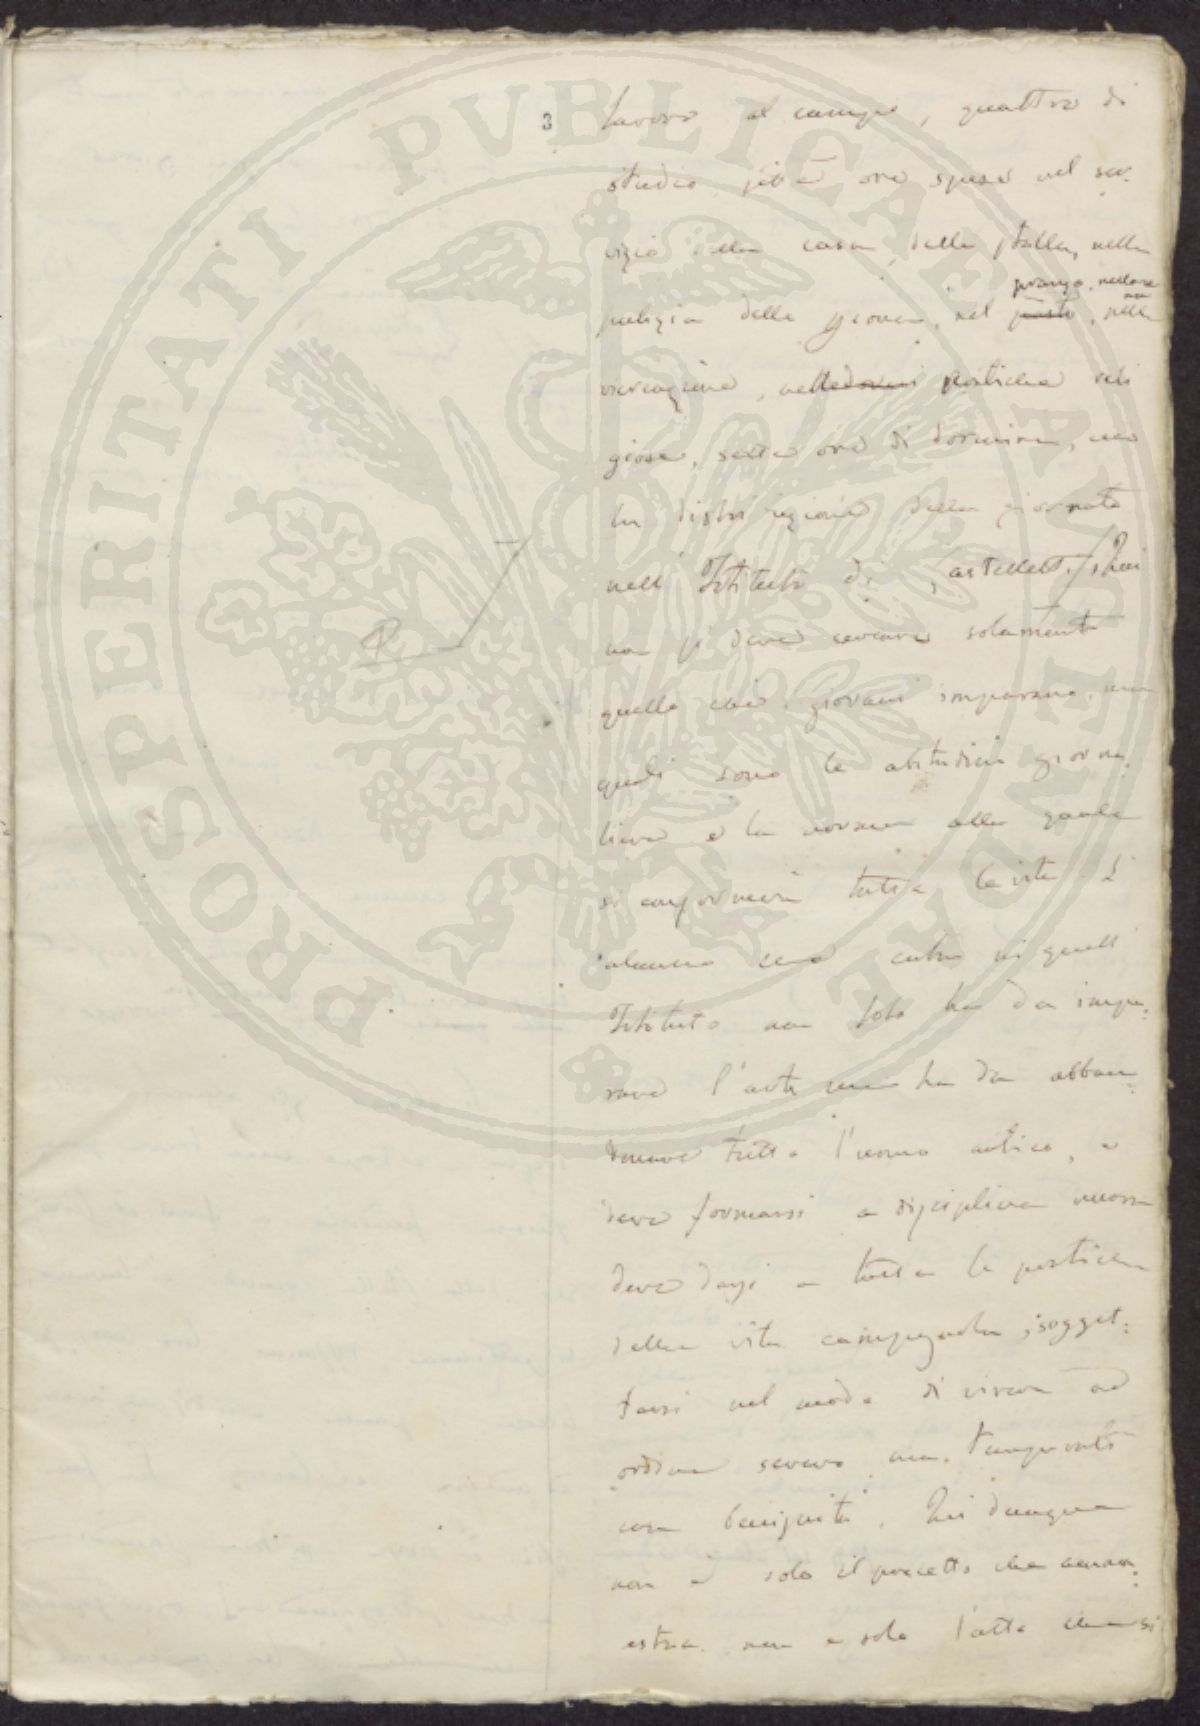 PROSPERITATI PVBLICAE AVGENDAE
3
lavoro al campo, quattro di
studio, sette ore spese nel ser-
vizio della casa, della stalla, nella
pranzo, nella re
pulizia delle persone, nel pasto, nella
creazione, nelle pratiche reli
giose, sette ore di dormire, ecco
la distribuzione della giornata
nell'Istituto di Castelletti. Qui
non si deve cercare solamente
quello che i giovani imparano, ma
quali sono le abitudini giorna-
liere e la norma alla quale
si conformerà tutta la vita. L'
alunno che entra in quell'
Istituto non solo ha da impa-
rare l'arte ma ha da abban-
donare tutto l'uomo antico, e
deve formarsi a disciplina nuova
deve darsi a tutta la pratica
della vita campagnola, sogget-
tarsi nel modo di vivere ad
ordine severo ma temperato
con benignità. Qui dunque
non è solo il precetto che ammae-
stra, non è solo l'atto che si